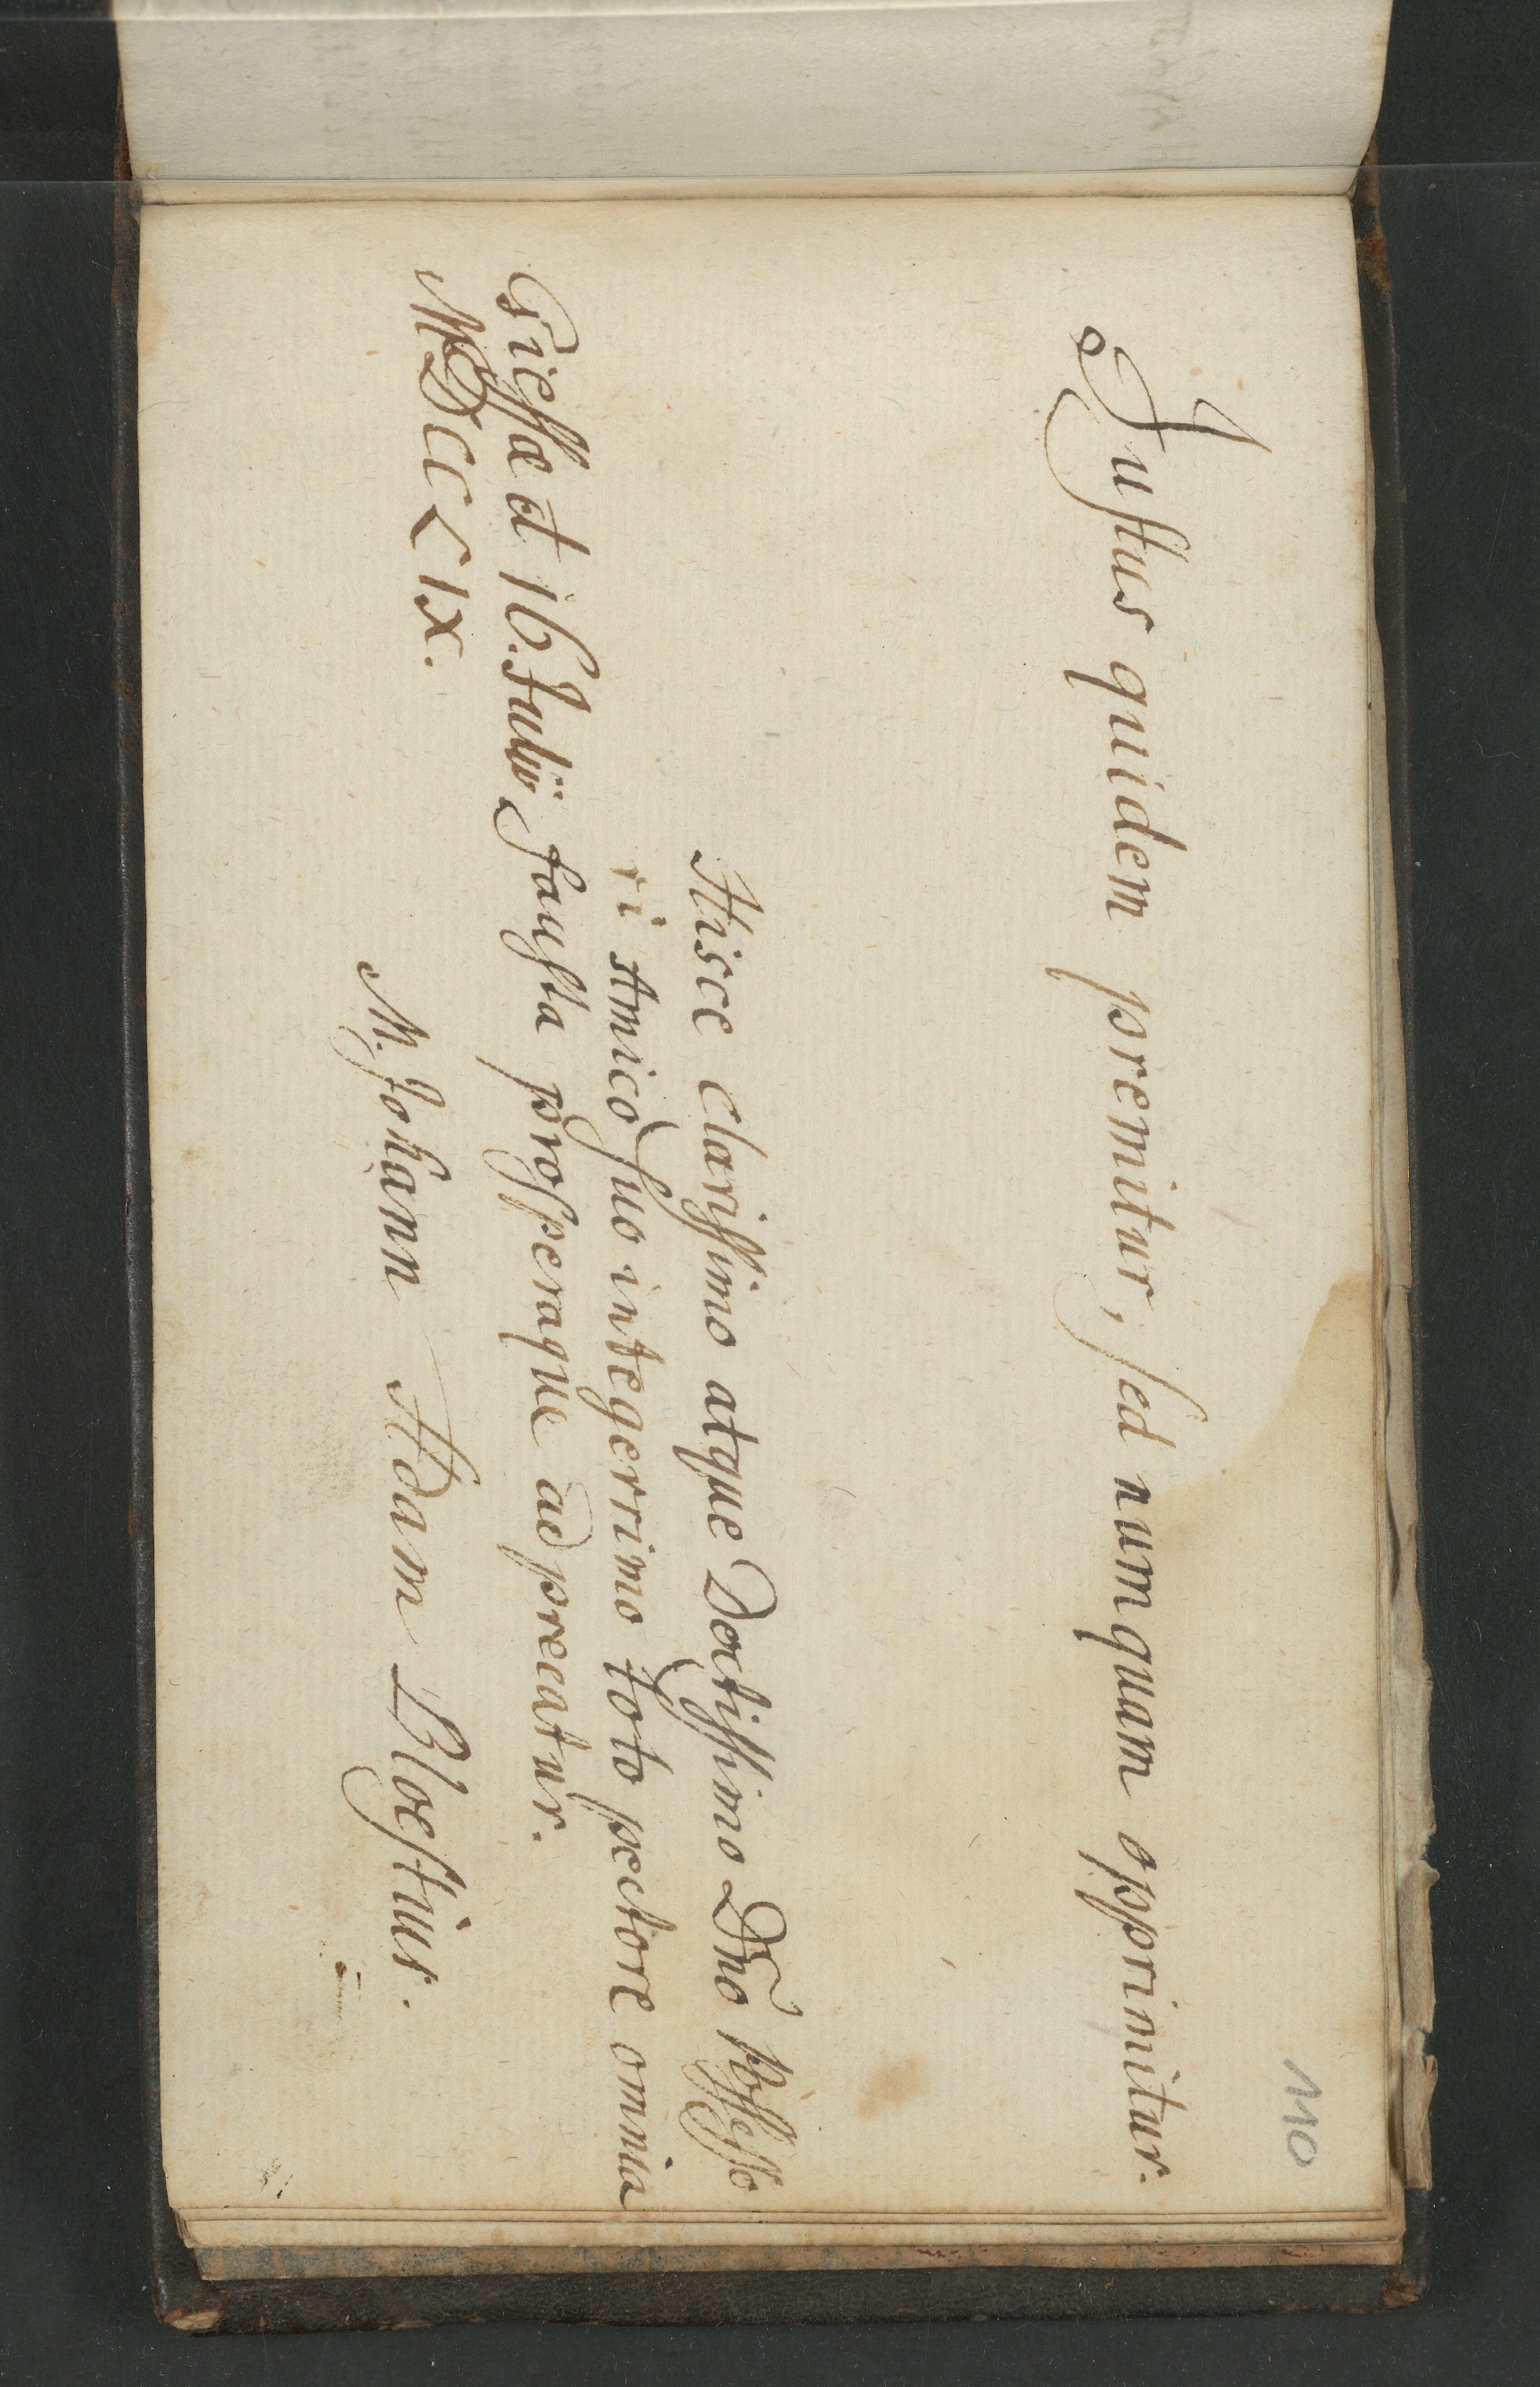 110
Justus quidem premitur, sed numquam opprimitur.
Hisce clarissimo atque Doctissimo Dno possesso
ri Amico suo integerrimo toto pectore omnia
Giessæ d 16. Julii fausta prosperaque adprecatur.
MDCCCIX.
M. Johann Adam Bloestius.